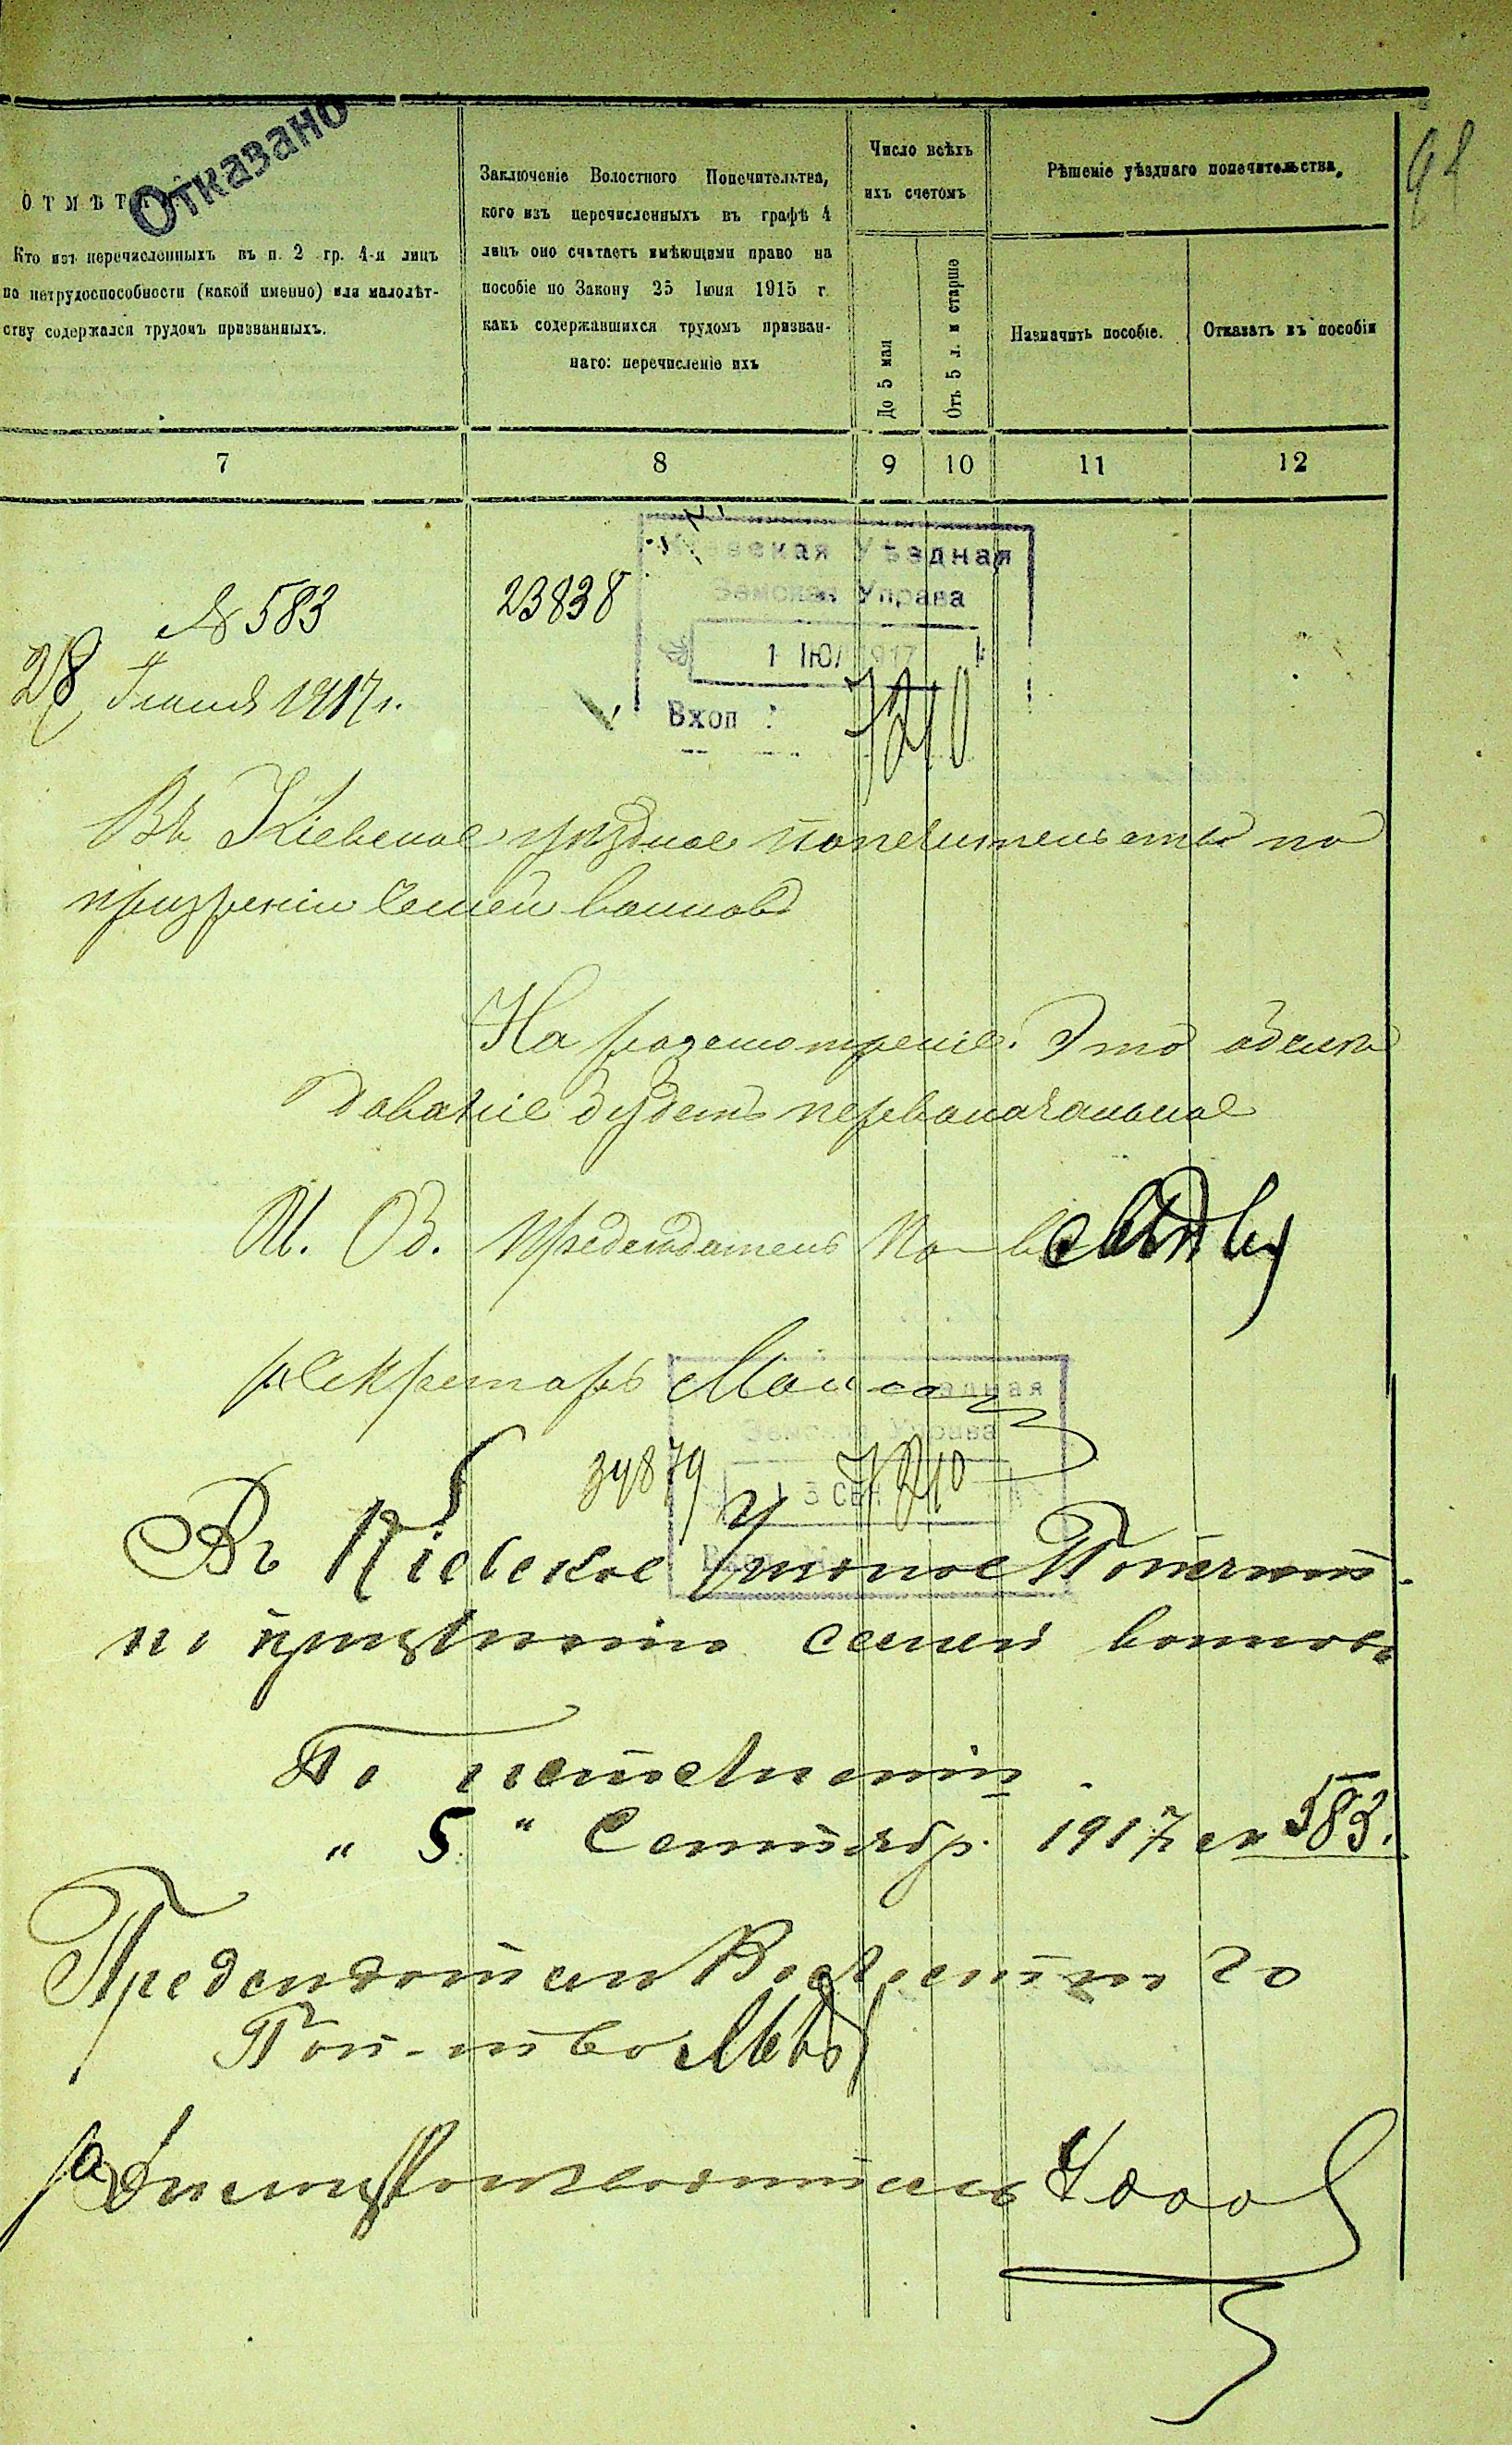 94
Отказано
ОТМѢТ
Кто изъ перечисленныхъ въ п. 2 гр. 4-я лицъ
по нетрудоспособности (какой именно) или малолѣт-
ству содержался трудомъ призванныхъ.
Заключеніе Волостного Попечительства,
кого изъ перечисленныхъ въ графѣ 4
лицъ оно считаетъ имѣющими право на
пособіе по Закону 25 Іюня 1915 г.
какъ содержавшихся трудомъ призван-
наго: перечисленіе ихъ
Число всѣхъ
ихъ счетомъ
До 5 мал
Отъ 5 л. и старше
Рѣшеніе уѣзднаго попечительства.
Назначить пособіе.
Отказать въ пособіи
7 8 9 10 11 12
Кіевская Уѣздная
Земская Управа
1 ІЮЛ 1917
Вход
7210
№ 583
23838
28 Іюня 1917 г.
Въ Кіевское уѣздное попечительство по
призрѣнію семей воиновъ
На разсмотреніе. Это обслѣ
дованіе будетъ первоначальное
И. Об. Председатель По-ва
Секретарь
Земская Управа
СЕН
34879 7210
Въ Кіевское Уѣздное Попечит.
по призрѣнію семей воиновъ
По
" 5 " Сентябр. 1917 г. № 583.
Председатель Волостного
Поп-тво
Дѣлопроизводитель